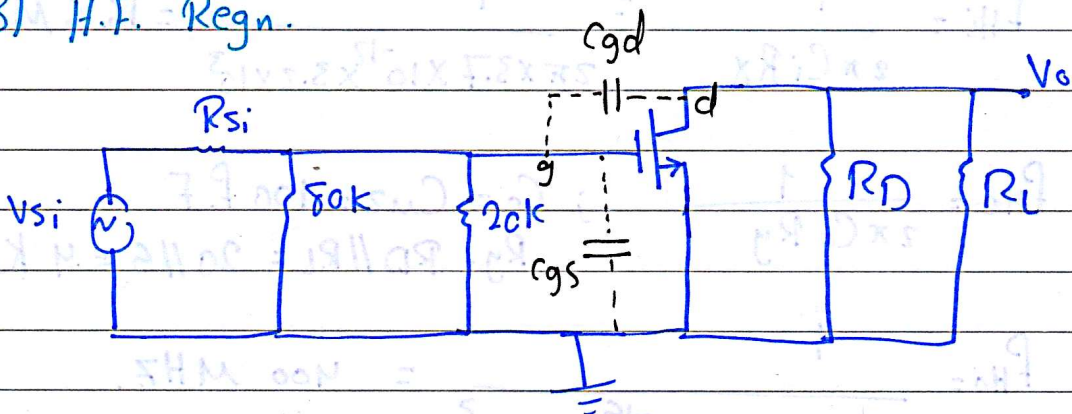 3) H.F. Regn.
Cgd
Vo
Rsi
d
g
Vsi
80K
20K
RD
RL
Cgs